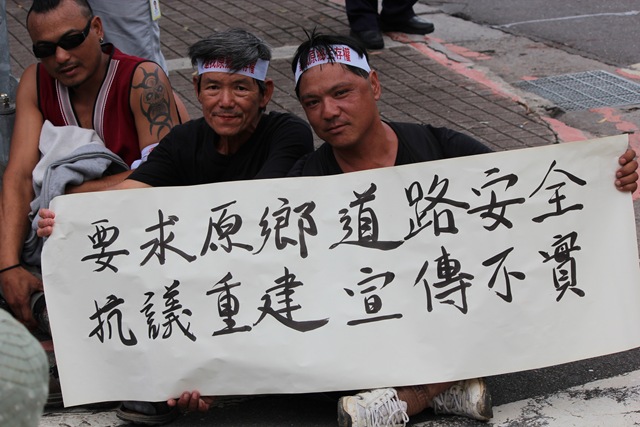 要求原鄉道路安全
抗議重建宣傳不實